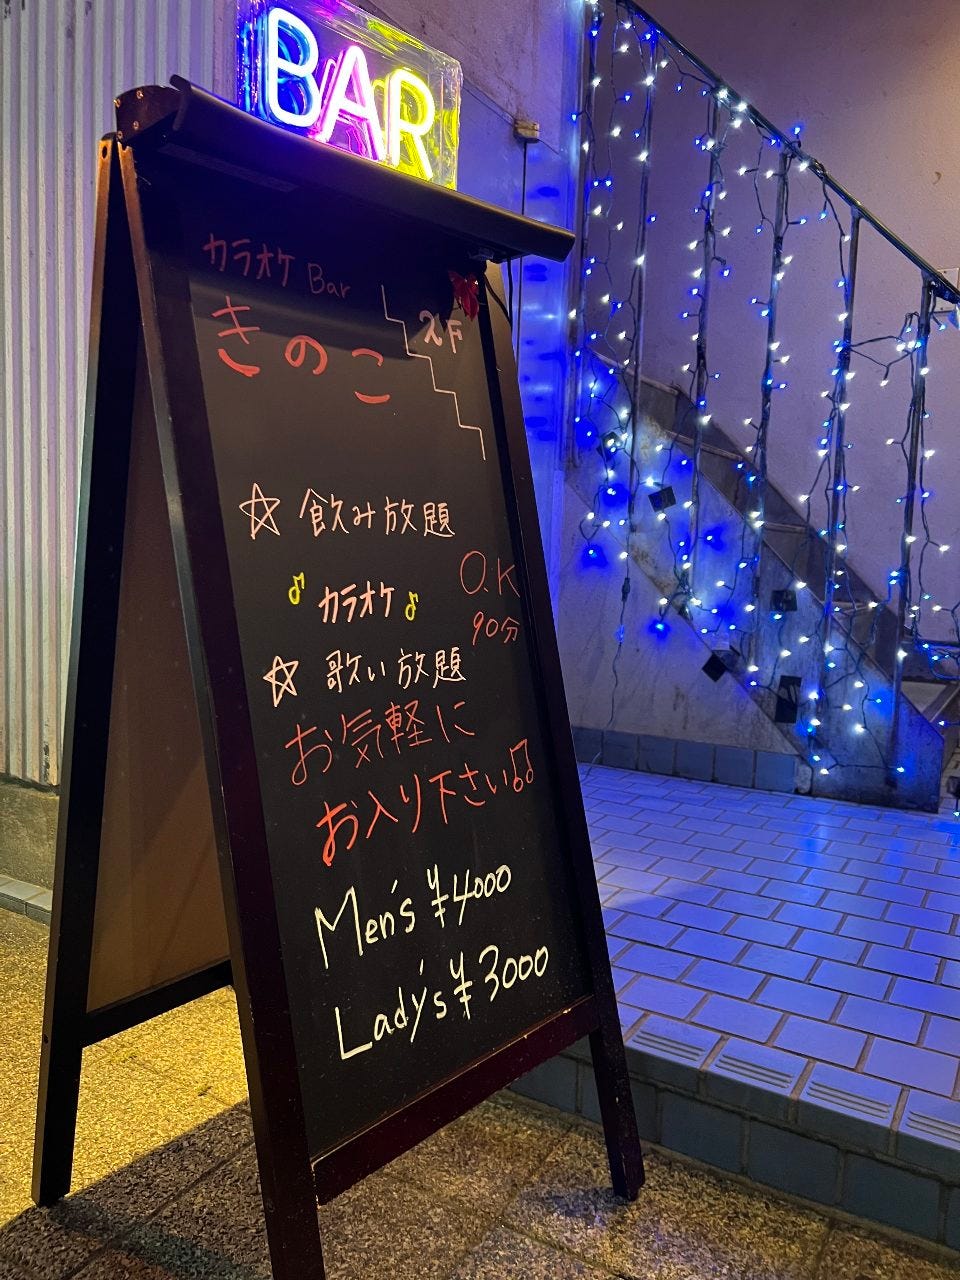 BAR
カラオケ Bar
きのこ
2F
☆ 飲み放題
♪ カラオケ ♪
O.K
90分
☆ 歌い放題
お気軽に
お入り下さい♫
Men's ¥4000
Lady's ¥3000